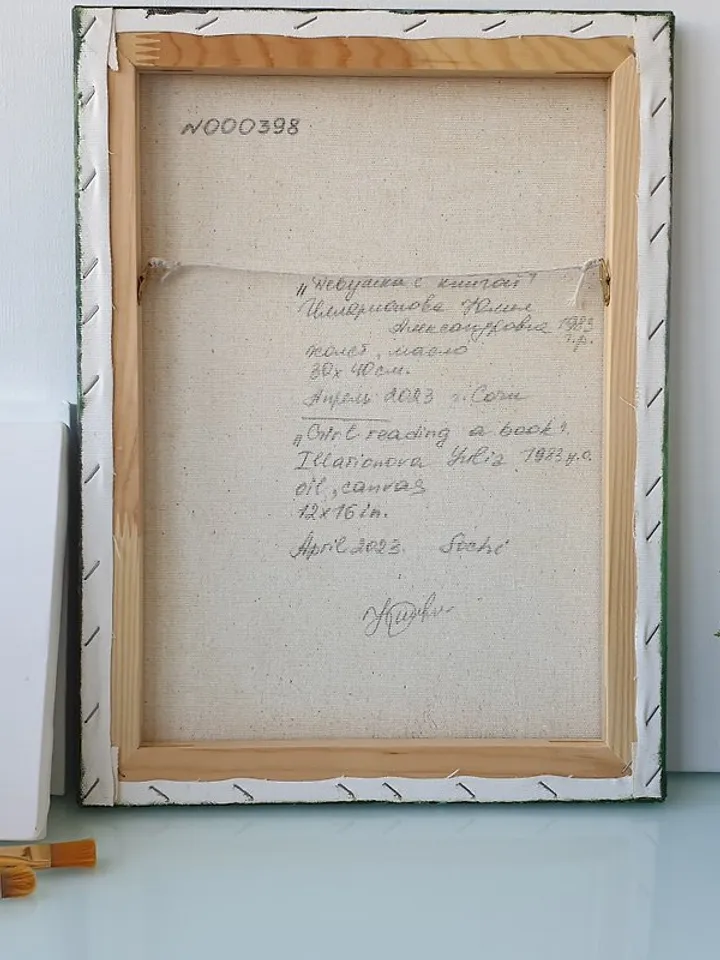 N000398
„Девушка с книгой"
Илларионова Юлия
Александровна 1983
г.р.
холст, масло
30х40см.
Апрель 2023 г. Сочи
„Girl reading a book".
Illarionova Yulia 1983 y.o.
oil, canvas
12x16 in.
April 2023. Sochi